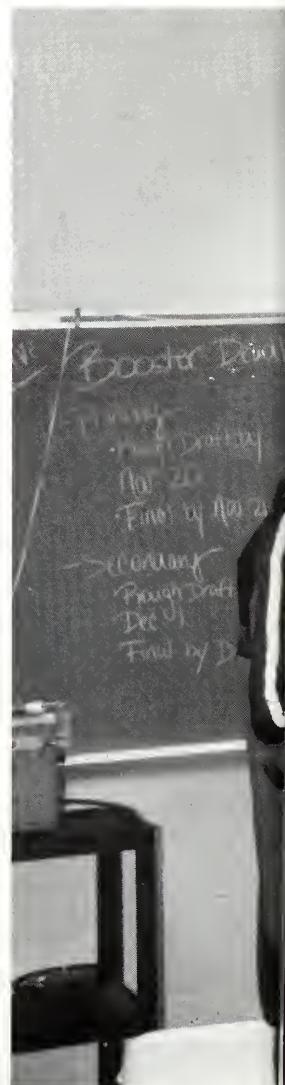 Booster
- Primary
Rough Draft by
Nov 20
Final by Nov 2
- Secondary
Rough Draft
Dec
Final by D